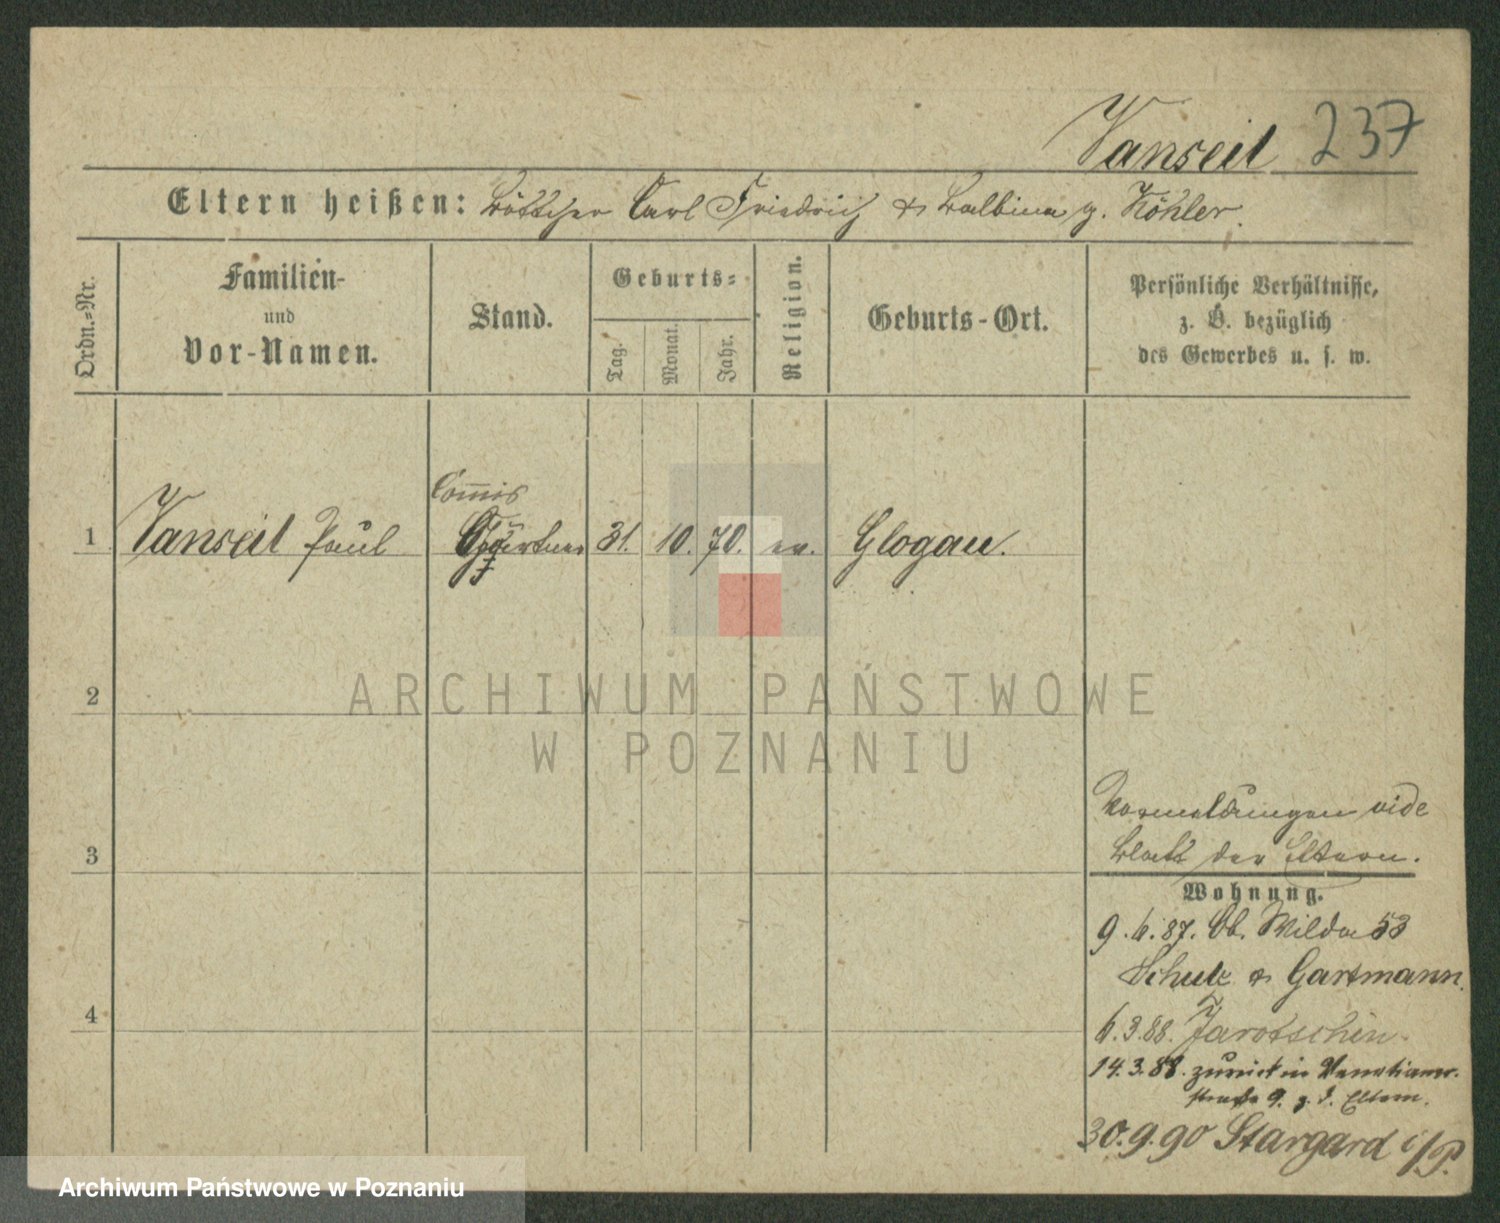 Vanseit 237
Eltern heißen: Böttcher Carl Friedrich & Balbina g. Köhler.
Ordn.=Nr.
Familien-
und
Vor-Namen.
Stand.
Geburts=
Tag.
Monat.
Jahr.
Religion.
Geburts-Ort.
Persönliche Verhältnisse,
z. B. bezüglich
des Gewerbes u. s. w.
Commis
1 Vanseit Paul Gärtner 31. 10. 70. ev. Glogau.
2
ARCHIWUM PAŃSTWOWE
W POZNANIU
3
Vormeldungen vide
Blatt der Eltern.
Wohnung.
9.6.87. Ob. Wilda 53
Schulz & Gartmann.
4
6.3.88. Jarotschin.
14.3.88. zurück in Venetianer-
straße 9. z. d. Eltern.
30.9.90 Stargard i/P.
Archiwum Państwowe w Poznaniu